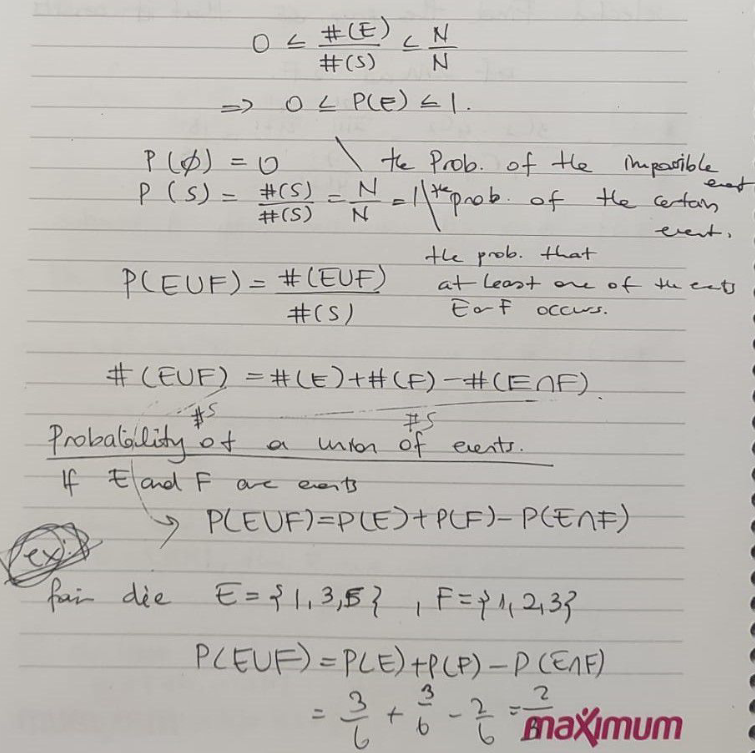 0 ≤ #(E)/#(S) ≤ N/N
=> 0 ≤ P(E) ≤ 1.
P(∅) = 0 \ the Prob. of the impossible event
P(S) = #(S)/#(S) = N/N = 1 \\ the prob. of the certain event.
the prob. that
P(E∪F) = #(E∪F)/#(S) at least one of the events
E or F occurs.
#(E∪F) = #(E)+#(F)-#(E∩F).
#S #S
Probability of a union of events.
If E and F are events
→ P(E∪F)=P(E)+P(F)-P(E∩F)
ex:
fair die E={1,3,5}, F={1,2,3}
P(E∪F)=P(E)+P(F)-P(E∩F)
= 3/6 + 3/6 - 2/6 = 2/
maximum